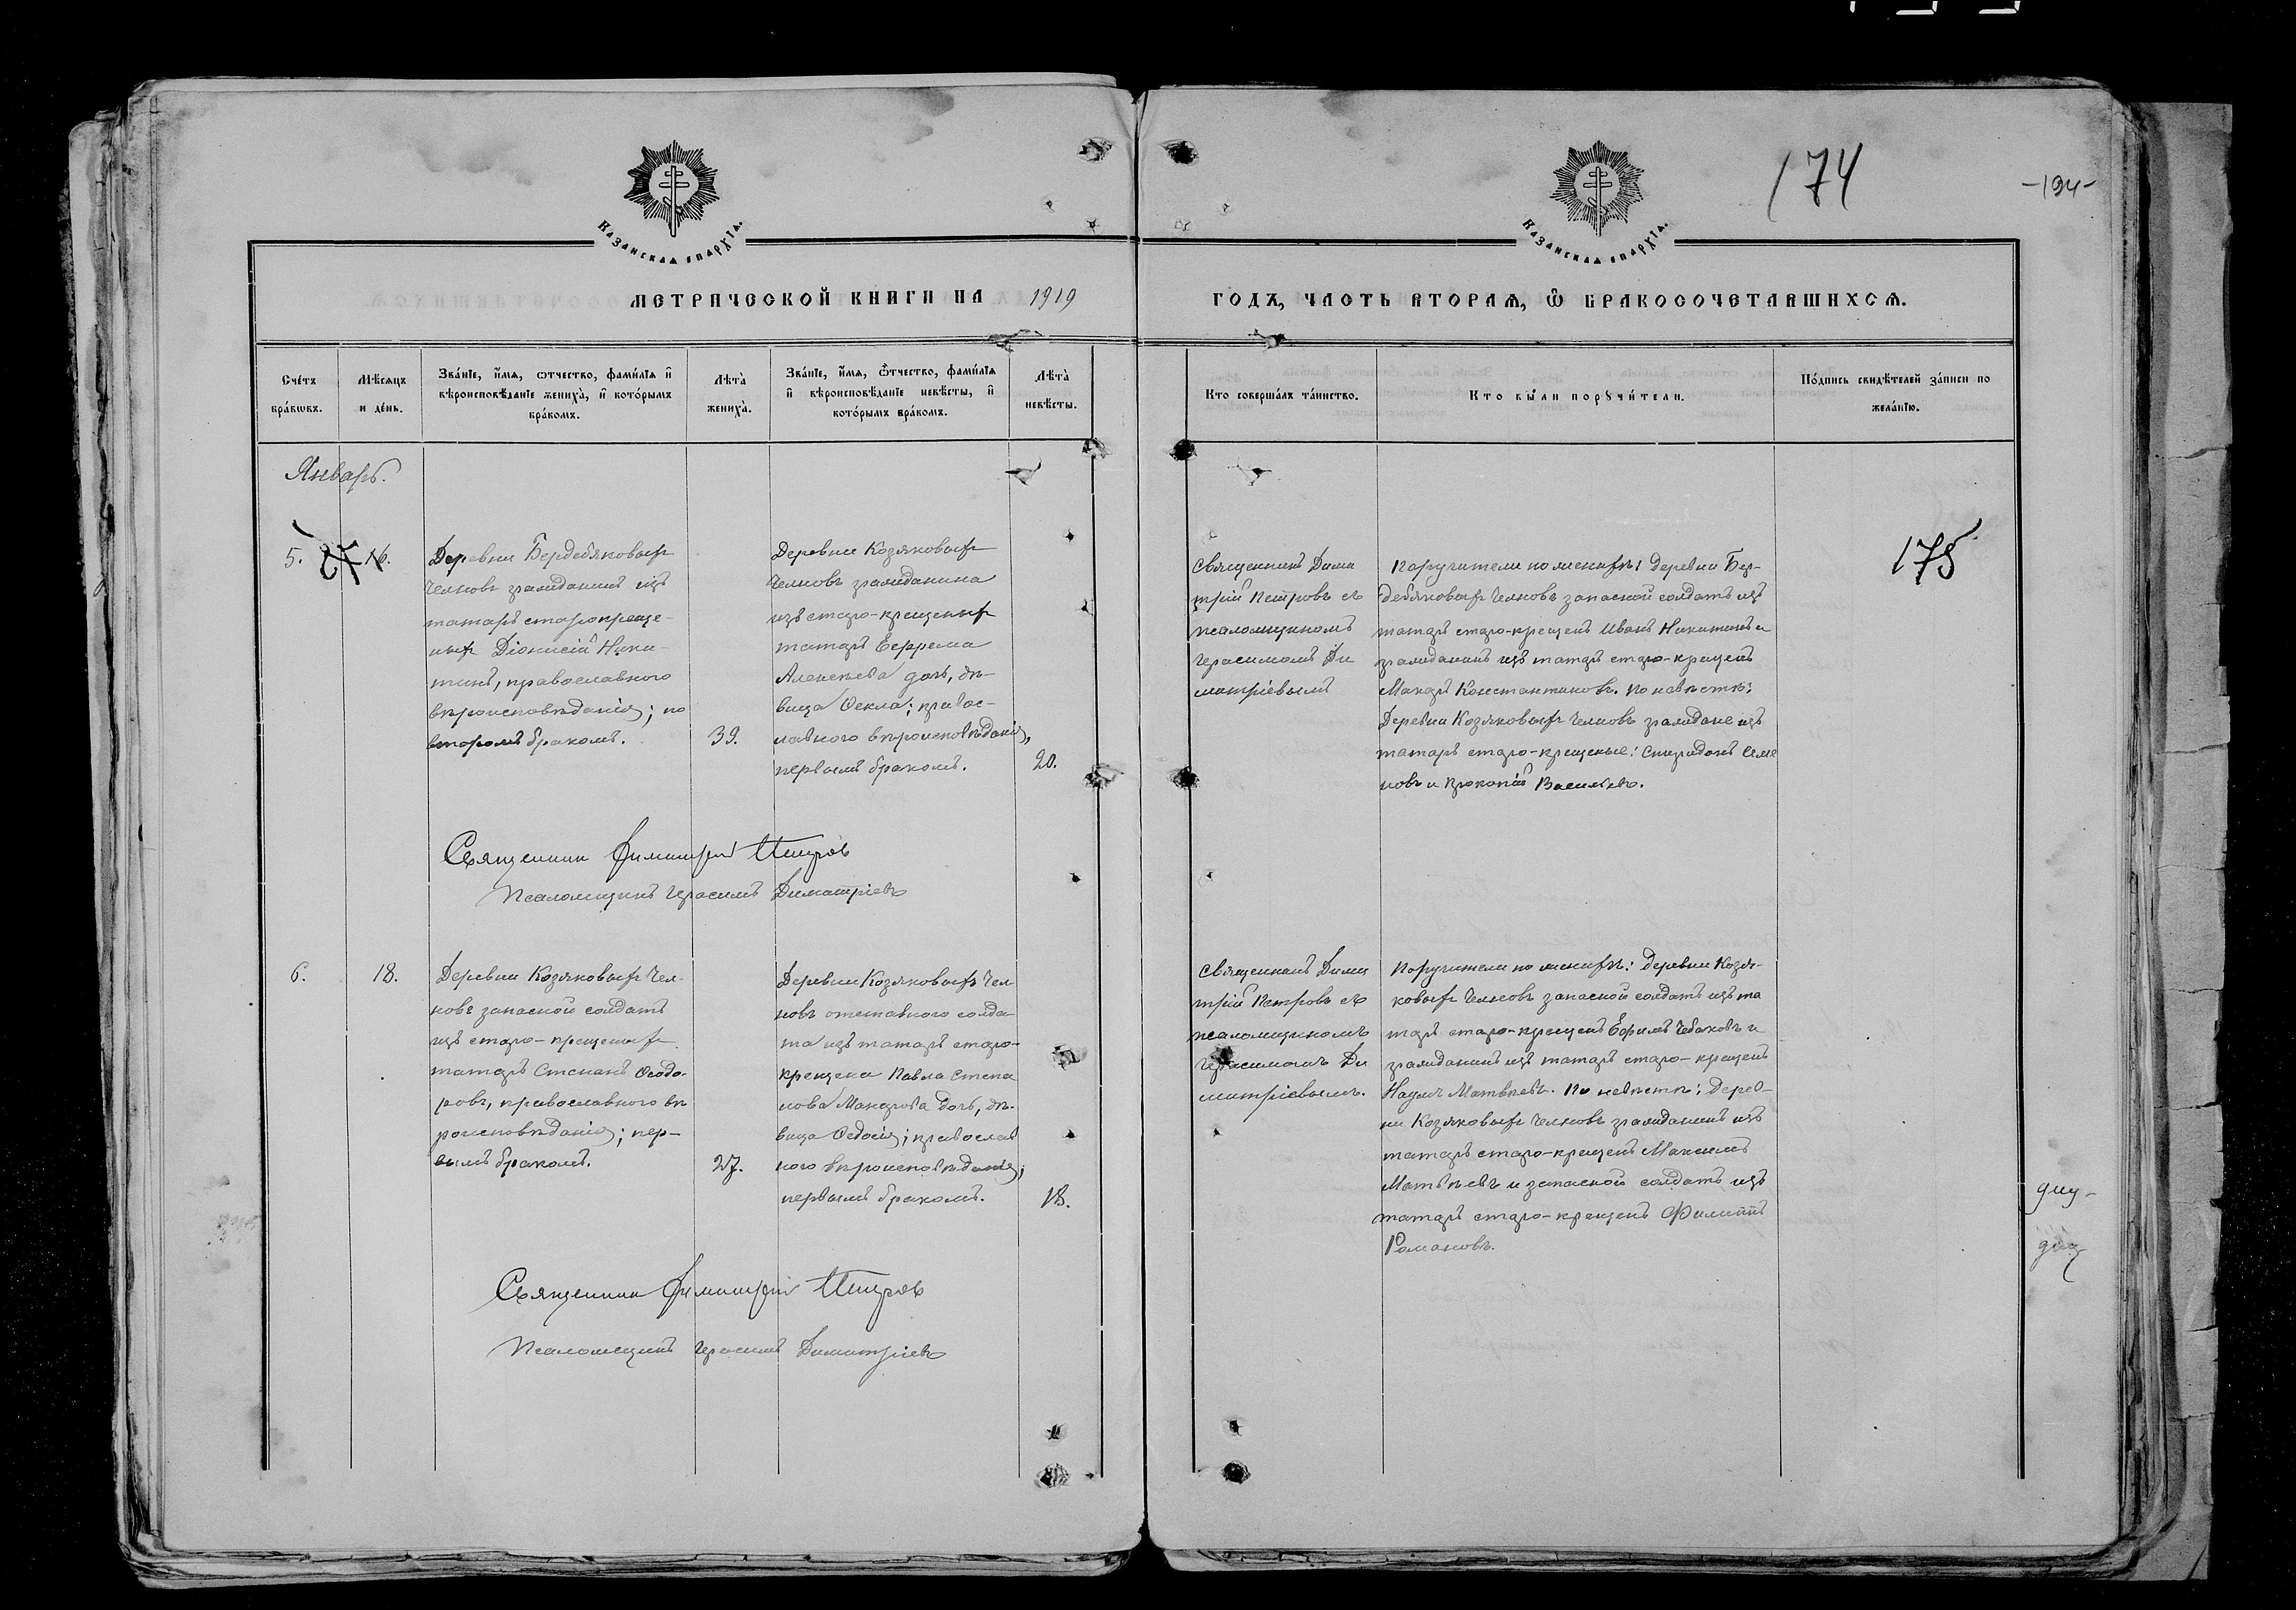 174
-194-
Казанская епархїа.
Казанская епархїа.
МЕТРИЧЕСКОЙ КНИГИ НА 1919
ГОДЪ, ЧАСТЬ ВТОРАѦ, Ѽ БРАКОСОЧЕТАВШИХСѦ.
Сче́тъ бра́кѡвъ.
Мѣ́сяцъ и де́нь.
Зва́нїе, и҆́мѧ, ѻтчество, фами́лїѧ и҆ вѣроисповѣ́данїе жениха̀, и҆ кото́рымъ бра́комъ.
Лѣта̀ жениха̀.
Зва́нїе, и҆́мѧ, ѻтчество, фами́лїѧ и҆ вѣроисповѣ́данїе невѣ́сты, и҆ кото́рымъ бра́комъ.
Лѣта̀ невѣ́сты.
Кто соверша́лъ та́инство.
Кто бы́ли порꙋчи́тели.
По́дпись свидѣ́телей за́писи по жела́нїю.
Январь.
5.
16.
Деревни Бердебяковыхъ
Челновъ гражданинъ изъ
татаръ старокреще-
ныхъ Діонисій Ники-
тинъ, православнаго
вѣроисповѣданія; по
вторымъ бракомъ.
39.
Деревни Козяковыхъ
Челновъ гражданина
изъ старо-крещеныхъ
татаръ Ефрема
Алексѣева дочь, дѣ-
вица Ѳекла; правос-
лавнаго вѣроисповѣданія,
первымъ бракомъ.
20.
Священникъ Дими
трій Петровъ съ
псаломщикомъ
Герасимомъ Ди
митріевымъ
Поручители по женихѣ: деревни Бер-
дебяковыхъ Челновъ запасной солдатъ изъ
татаръ старо-крещенъ Иванъ Никитинъ и
гражданинъ изъ татаръ старо-крещенъ
Макаръ Константиновъ. По невѣстѣ:
Деревни Козяковыхъ Челновъ граждане изъ
татаръ старо-крещеные: Спиридонъ Семе
новъ и Прокопій Васильевъ.
175
Священник Димитрій Петров
Псаломщикъ Герасимъ Димитріевъ
6.
18.
Деревни Козяковыхъ Чел-
новъ запасной солдатъ
изъ старо-крещеныхъ
татаръ Степанъ Ѳеодо-
ровъ, православнаго вѣ
роисповѣданія; пер-
вымъ бракомъ.
27.
Деревни Козяковыхъ Чел
новъ отставного солда
та изъ татаръ старо-
крещена Павла Степа
нова дочь, дѣ-
вица Ѳедосія; православ
наго вѣроисповѣданія;
первымъ бракомъ.
18.
Священникъ Дими
трій Петровъ съ
псаломщикомъ
Герасимомъ Ди
митріевымъ.
Поручители по женихѣ: деревни Козя-
ковыхъ Челновъ запасной солдатъ изъ та
таръ старо-крещенъ Ефимъ Чебаковъ и
гражданинъ изъ татаръ старо-крещенъ
Наумъ Матвѣевъ. По невѣстѣ: Дерев-
ни Козяковыхъ Челновъ гражданинъ изъ
татаръ старо-крещенъ Максимъ
Матвѣевъ и запасной солдатъ изъ
татаръ старо-крещенъ Филиппъ
Романовъ.
Священник Димитрій Петров
Псаломщикъ Герасимъ Димитріевъ